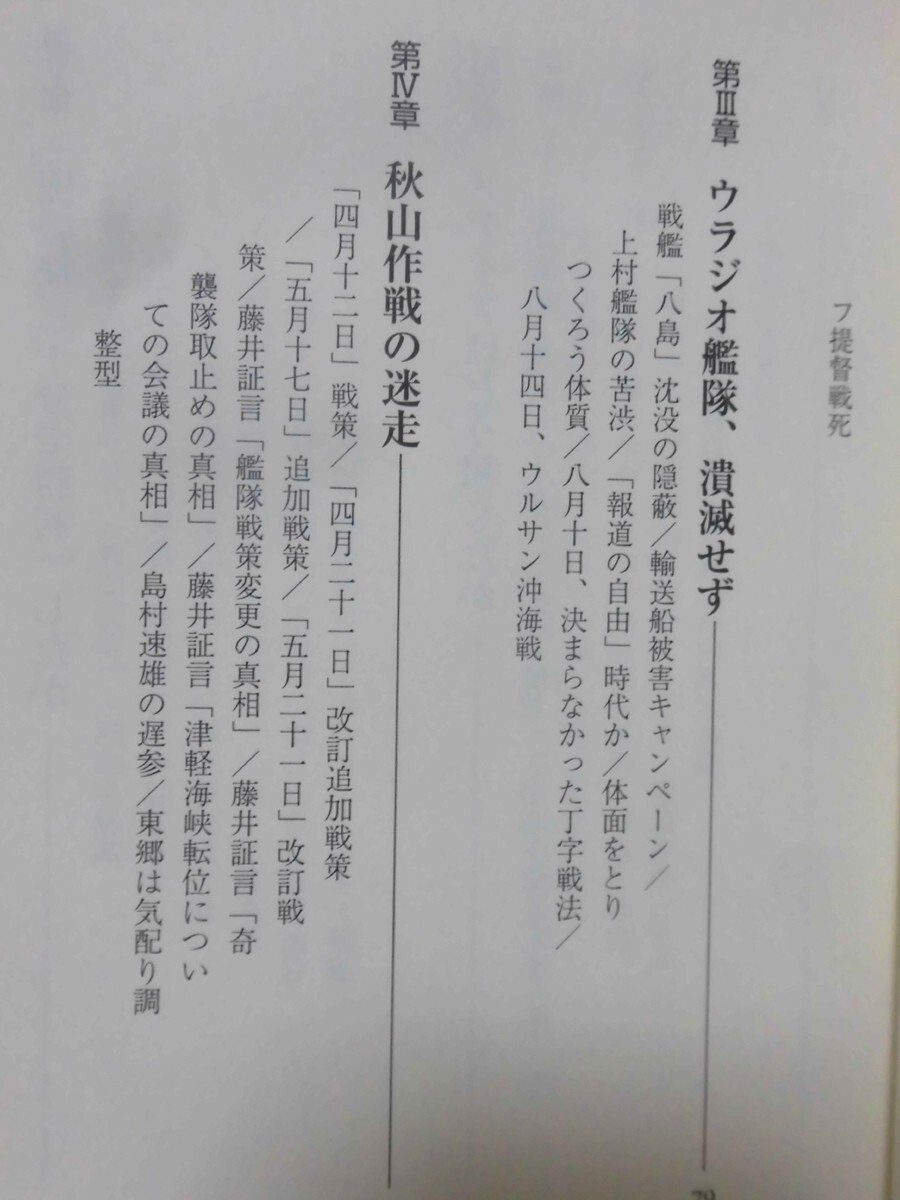 フ提督戦死
第Ⅲ章 ウラジオ艦隊、潰滅せず
戦艦「八島」沈没の隠蔽/輸送船被害キャンペーン/
上村艦隊の苦渋/「報道の自由」時代か/体面をとり
つくろう体質/八月十日、決まらなかった丁字戦法/
八月十四日、ウルサン沖海戦
第Ⅳ章 秋山作戦の迷走
「四月十二日」戦策/「四月二十一日」改訂追加戦策
/「五月十七日」追加戦策/「五月二十一日」改訂戦
策/藤井証言「艦隊戦策変更の真相」/藤井証言「奇
襲隊取止めの真相」/藤井証言「津軽海峡転位につい
ての会議の真相」/島村速雄の遅参/東郷は気配り調
整型